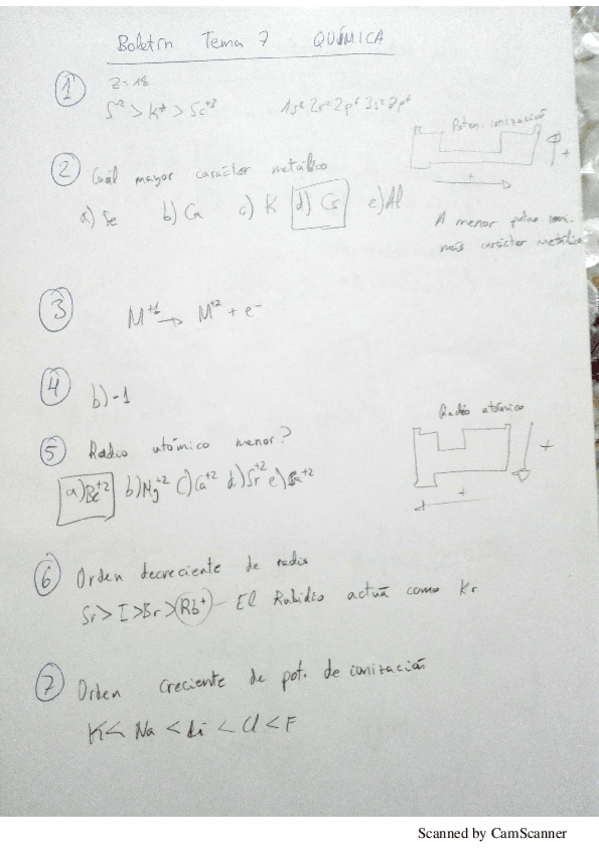 Boletín Tema 7 QUÍMICA
1 Z=18
S⁻² > K⁺ > Sc⁺³ 1s² 2s² 2p⁶ 3s² 3p⁶
Poten. ionización
+
+
2 Cuál mayor carácter metálico
a) Se b) Ca c) K d) Cs e) Al
A menor poten. ioni.
más carácter metálico
3 M⁺¹ → M⁺² + e⁻
4 b) -1
Radio atómico
+
+
5 Radio atómico menor?
a) Be⁺² b) Mg⁺² c) Ca⁺² d) Sr⁺² e) Ba⁺²
6 Orden decreciente de radio
Sr > I > Br > Rb⁺ - El Rubidio actúa como Kr
7 Orden creciente de pot. de ionización
K < Na < Li < Cl < F
Scanned by CamScanner